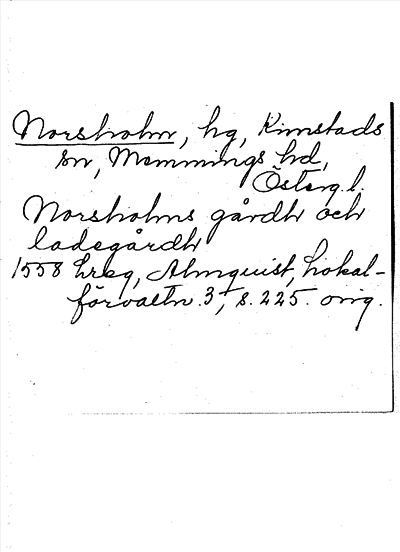 Norsholm, hg, Kimstads
sn, Memmings hd,
Österg. l.
Norsholms gårdh och
ladegårdh
1558 hreg, Almquist, Lokal-
förvaltn. 3, s. 225. orig.